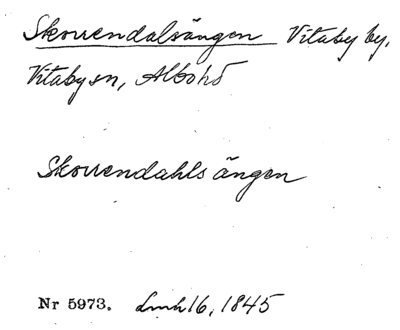 Skovendalsängen Vitaby by,
Vitaby sn, Albo hd
Skovendahls ängen
Nr 5973. Lmh 16, 1845